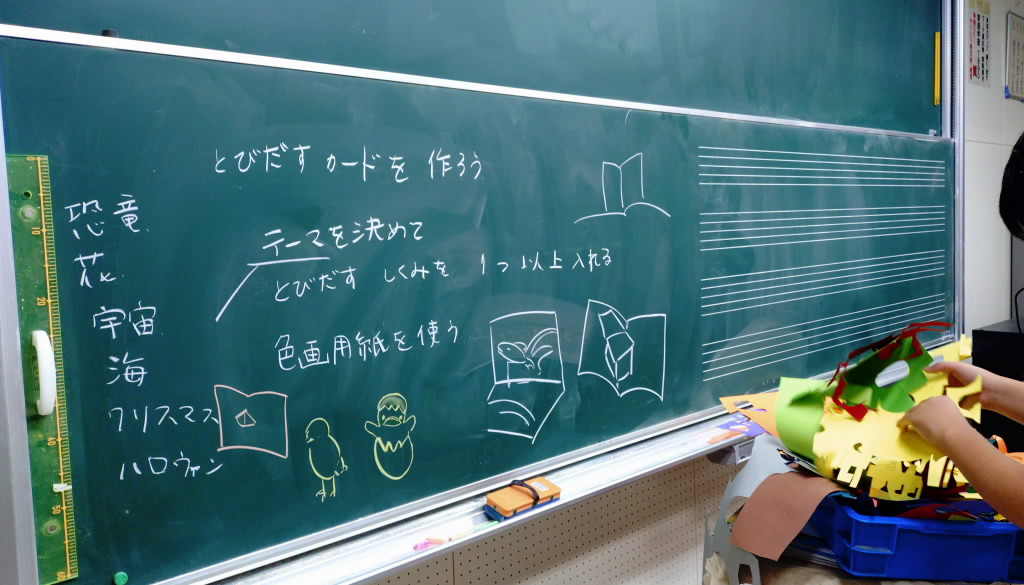 とびだすカードを作ろう
テーマを決めて
とびだす しくみを 1つ以上入れる
色画用紙を使う
恐竜
花
宇宙
海
クリスマス
ハロウィン